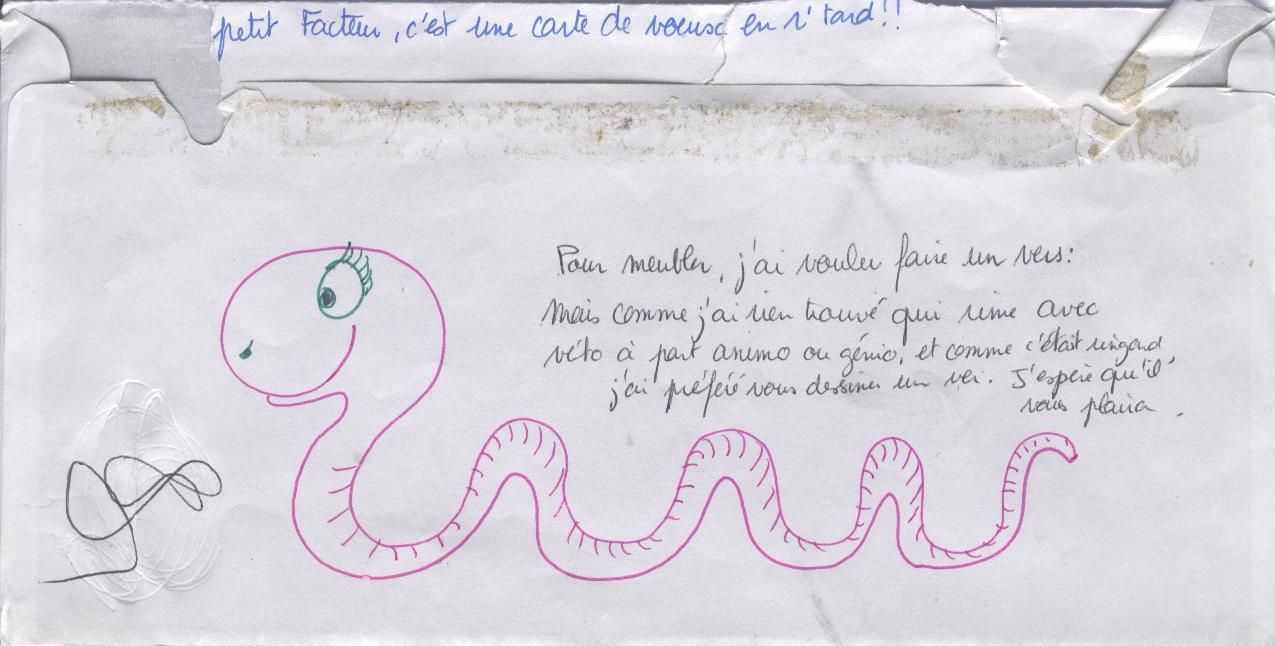 petit Facteur, c'est une carte de voeux en r'tard!!
Pour meubler, j'ai voulu faire un vers:
Mais comme j'ai rien trouvé qui rime avec
véto à part animo ou génio, et comme c'était ringard,
j'ai préféré vous dessiner un ver. J'espère qu'il
vous plaira.